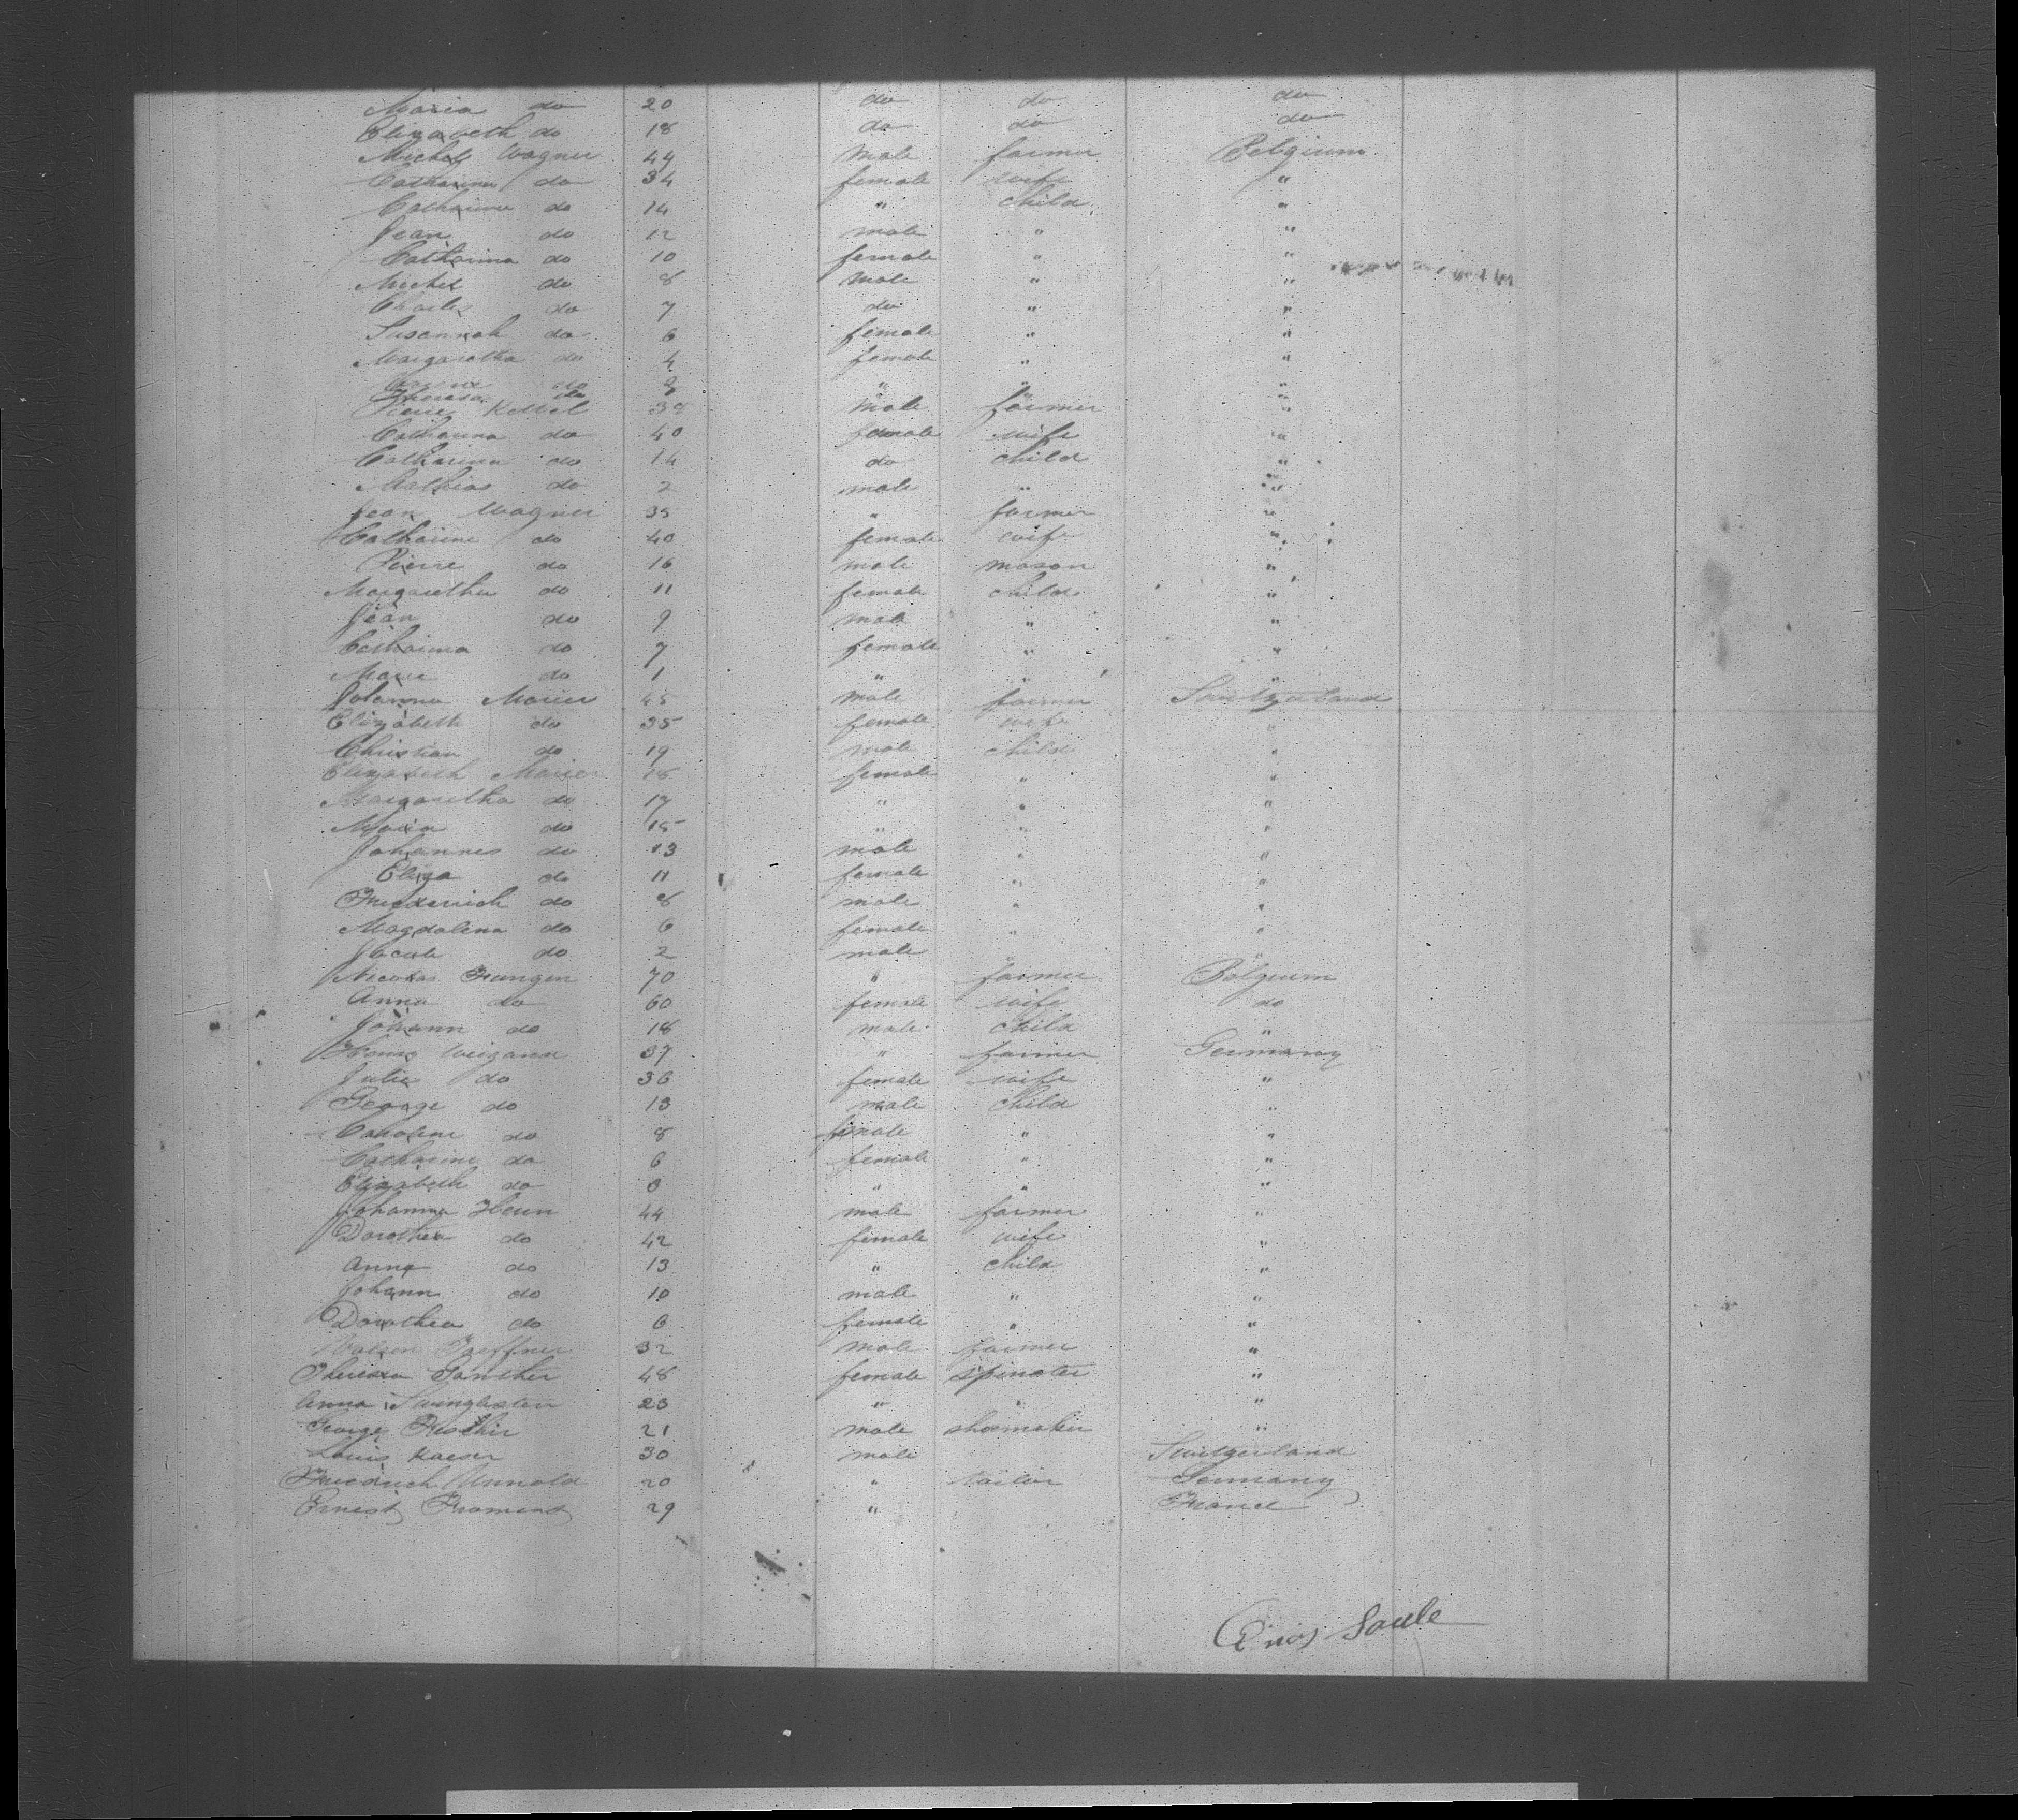 Maria do 20 do do do
Elizabeth do 18 do do do
Michel Wagner 44 male farmer Belgium
Catharina do 34 female wife "
Catharina do 14 " child "
Jean do 12 male " "
Catharina do 10 female " "
Michel do 8 male " "
Charles do 7 do " "
Susannah do 6 female " "
Margaretha do 4 female " "
do " " "
Theresa do
Pierre Kettel 38 male farmer "
Catharina do 40 female wife "
Catharina do 14 do child "
Mathias do 2 male " "
Jean Wagner 35 " farmer "
Catharine do 40 female wife "
Pierre do 16 male mason "
Margaretha do 11 female child "
Jean do 9 male " "
Catharina do 7 female " "
Marie do 1 " " "
Johanna Marier 45 male farmer Switzerland
Elizabeth do 35 female wife "
Christian do 19 male child "
Elizabeth Marier 18 female " "
Margaretha do 17 " " "
Maria do 15 " " "
Johannes do 13 male " "
Eliza do 11 female " "
Friederich do 8 male " "
Magdalena do 6 female " "
Jacob do 2 male " "
Nicolas Frungen 70 " farmer Belgium
Anna do 60 female wife do
Johann do 18 male child "
Weigand 37 " farmer Germany
Julie do 36 female wife "
George do 13 male child "
Caroline do 8 female " "
Catharine do 6 female " "
Elizabeth do 3 " " "
Johanna Henn 44 male farmer "
Dorothea do 42 female wife "
Anna do 13 " child "
Johann do 10 male " "
Dorothea do 6 female " "
32 male farmer "
Theresa Ganther 48 female spinster "
Anna 23 " " "
George 21 male shoemaker "
Louis Kaeser 30 male Switzerland
Friedrich Arnold 20 " tailor Germany
Ernest Froment 29 " France
Enos Soule